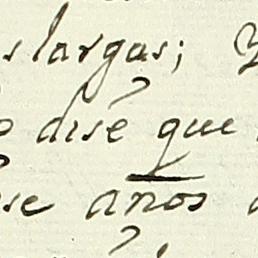 s largas; Y
disé que
se años